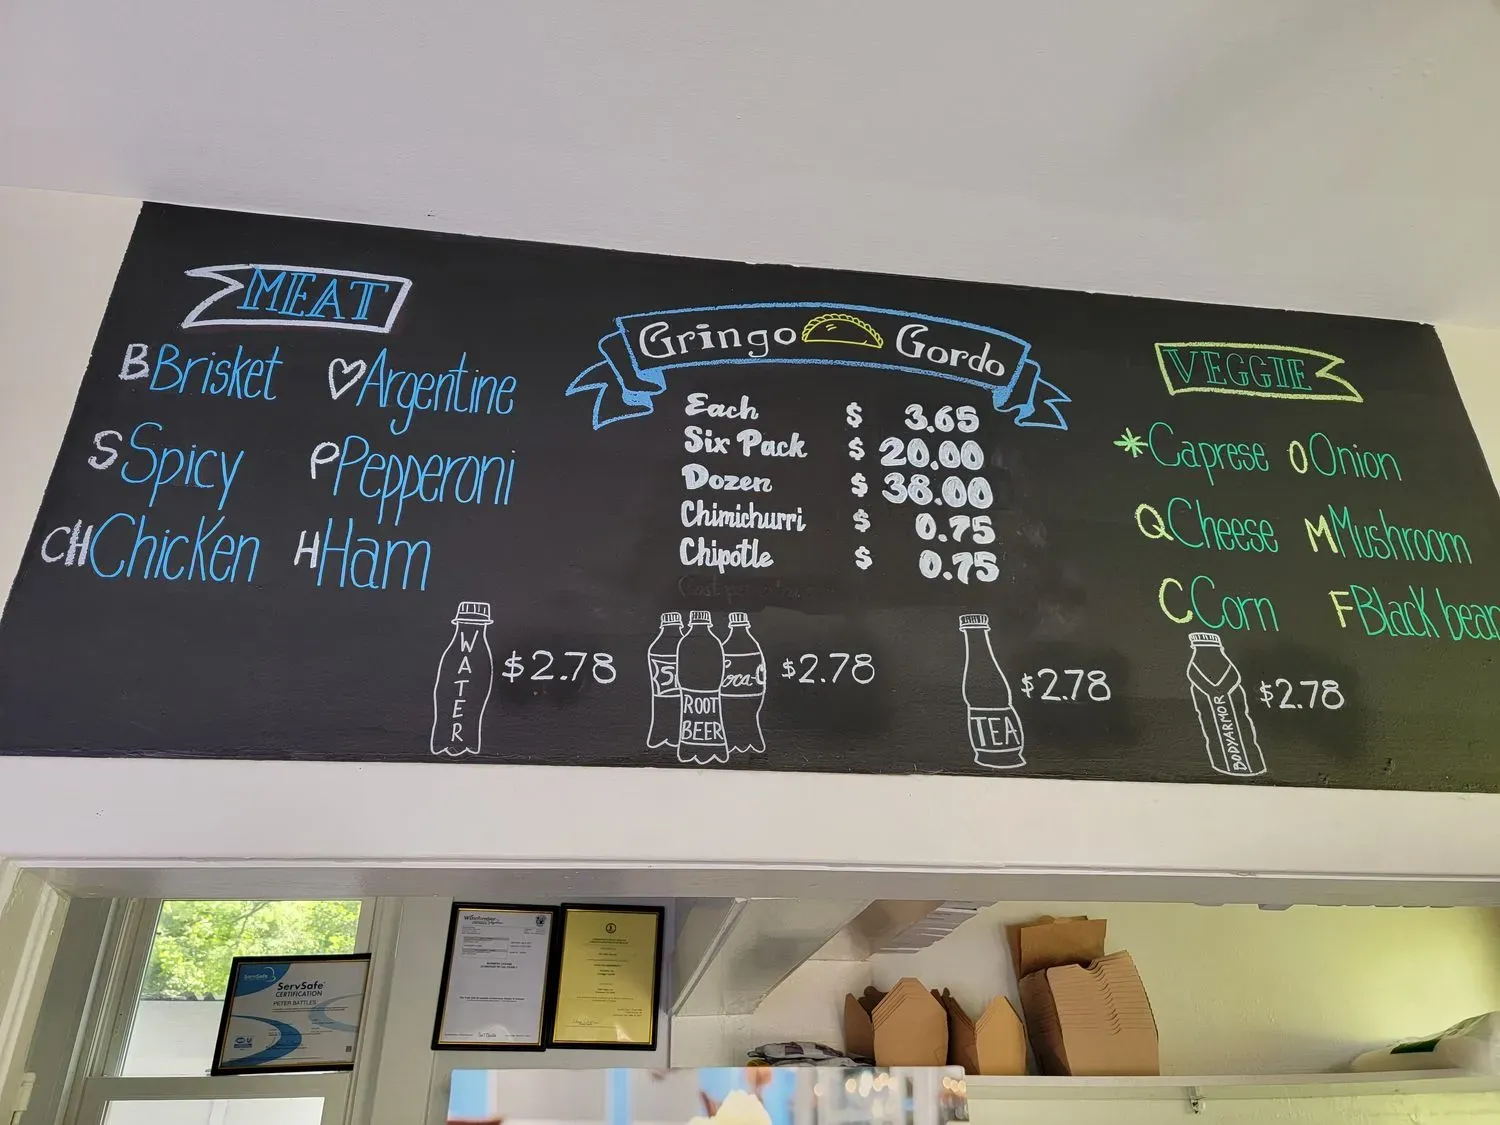 MEAT
B Brisket ♡ Argentine
S Spicy P Pepperoni
CH Chicken H Ham
Gringo Gordo
Each $ 3.65
Six Pack $ 20.00
Dozen $ 38.00
Chimichurri $ 0.75
Chipotle $ 0.75
VEGGIE
* Caprese O Onion
Q Cheese M Mushroom
C Corn F Black bean
WATER
$2.78
ROOT
BEER
$2.78
TEA
$2.78
BODYARMOR
$2.78
ServSafe
CERTIFICATION
PETER BATTLES